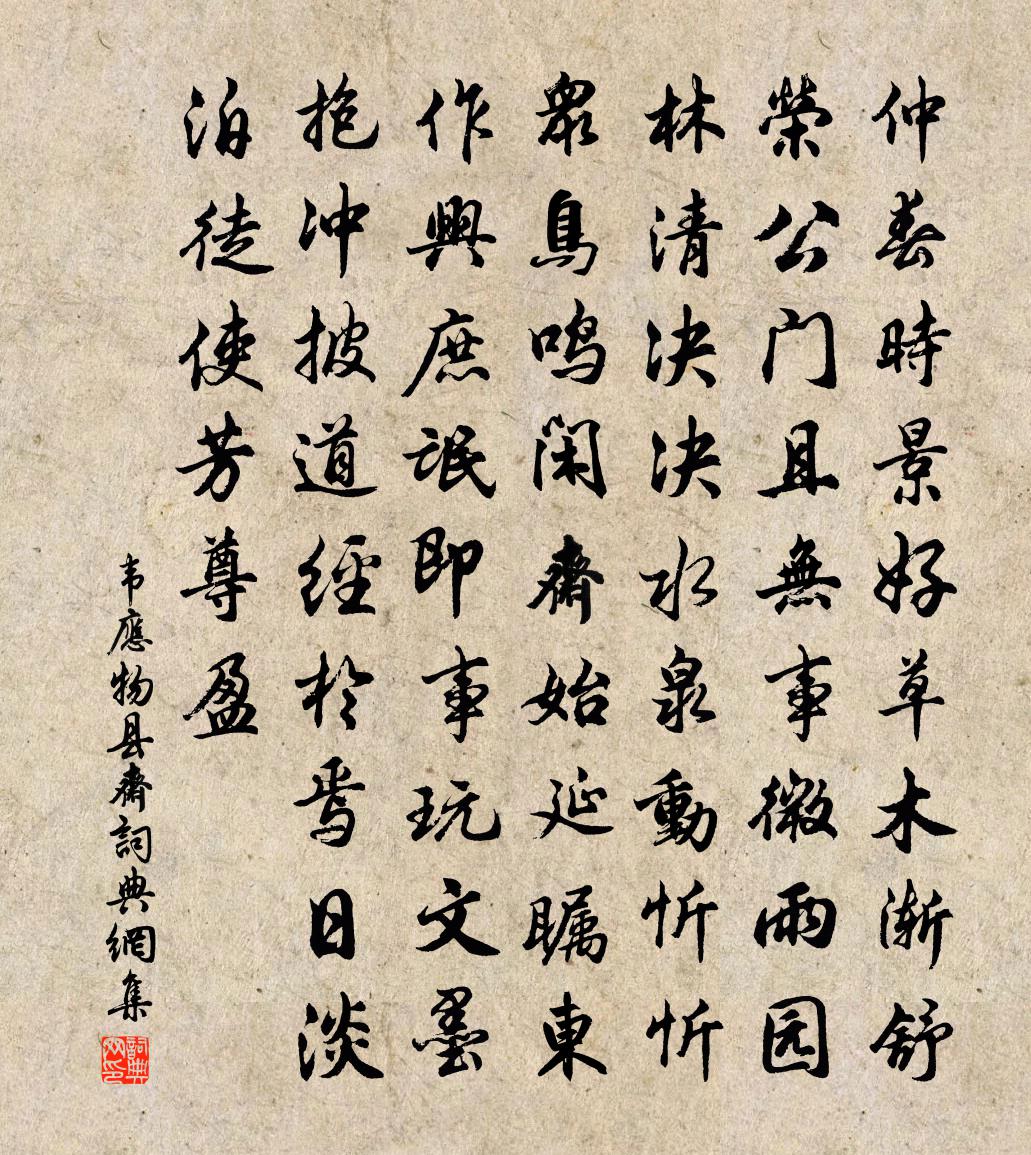 仲春時景好草木漸舒
榮公门且無事微雨园
林清決決水泉動忻忻
衆鳥鸣闲齋始延瞩東
作興庶氓即事玩文墨
抱冲披道經於焉日淡
泊徒使芳尊盈
韦應物县齋詞典網集
詞典网印